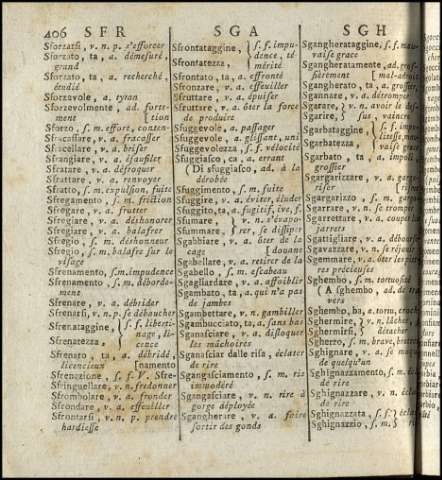 406 SFR SGA SGH
Sforzarsi, v. n. p. s'efforcer
Sforzato, ta, a. démesuré,
grand
Sforzato, ta, a. recherché,
étudié
Sforzevole, a. tyran
Sforzevolmente, ad. forte-
ment [tion
Sforzo, s. m. effort, conten-
Sfracassare, v. a. fracasser
Sfracellare, v. a. briser
Sfrangiare, v. a. éfaufiler
Sfratare, v. a. défroquer
Sfrattare, v. a. renvoyer
Sfratto, s. m. expulsion, fuite
Sfregamento, s. m. friction
Sfregare, v. a. frotter
Sfregiare, v. a. déshonorer
Sfregiare, v. a. balafrer
Sfregio, s. m. déshonneur
Sfregio, s. m. balafre sur le
visage
Sfrenamento, s.m. impudence
Sfrenamento, s. m. déborde-
ment
Sfrenare, v. a. débrider
Sfrenarsi, v. n. p. se débaucher
Sfrenataggine, s. f. liberti-
nage, li-
Sfrenatezza, cence
Sfrenato, ta, a. débridé,
licencieux [namento
Sfrenazione, s. f. V. Sfre-
Sfringuellare, v. n. fredonner
Sfrombolare, v. a. fronder
Sfrondare, v. a. effeuiller
Sfrontarsi, v. n. p. prendre
hardiesse
Sfrontataggine, s. f. impu-
dence, té
Sfrontatezza, mérité
Sfrontato, ta, a. effronté
Sfronzare, v. a. effeuiller
Sfruttare, v. a. épuiser
Sfruttare, v. a. ôter la force
de produire
Sfuggevole, a. passager
Sfuggevole, a. glissant, uni
Sfuggevolezza, s. f. vélocité
Sfuggiasco, ca, a. errant
(Di sfuggiasco, ad. à la
dérobée
Sfuggimento, s. m. fuite
Sfuggire, v. a. éviter, éluder
Sfuggito, ta, a. fugitif, ive, f.
Sfumare, v. n. s'évapo-
Sfummare, rer, se dissiper
Sgabbiare, v. a. ôter de la
cage [douane
Sgabellare, v. a. retirer de la
Sgabello, s. m. escabeau
Sgagliardare, v. a. affoiblir
Sgambato, ta, a. qui n'a pas
de jambes
Sgambettare, v. n. gambiller
Sgambucciato, ta, a. sans bas
Sganasciare, v. a. disloquer
les mâchoires
Sganasciar dalle risa, éclater
de rire
Sgangasciamento, s. m. ris
immodéré
Sgangasciare, v. n. rire à
gorge déployée
Sgangherare, v. a. faire
sortir des gonds
Sgangherataggine, s. f. mau-
vaise grace
Sgangheratamente, ad. gros-
siérement [mal-adroit
Sgangherato, ta, a. grossier,
Sgannare, v. a. détromper
Sgarare, v. n. avoir le des-
Sgarire, sus, vaincre
Sgarbataggine, s. f. impo-
litesse, mau-
Sgarbatezza, vaise grace
Sgarbato, ta, a. impoli,
grossier
Sgargarizzare, v. a. garga-
riser
Sgargarizzo, s. m.
Sgarrare, v. n. se tromper
Sgarrettare, v. a. couper les
jarrets
Sgattigliare, v. a. débourser
Sgavazzare, v. n. se réjouir
Sgemmare, v. a. ôter les pier-
res précieuses
Sghembo, s. m. tortuosité
(A sghembo, ad. de tra-
vers
Sghembo, ba, a. tortu,
Sghermire, v. n. lâcher,
Sghermirsi, détacher
Sgherro, s. m. brave,
Sghignare, v. a. se moquer
de quelqu'un
Sghignazzamento, s. m. éclat
de rire
Sghignazzare, v. n. éclater
de rire
Sghignazzata, s. f.
Sghignazzio, s. m.